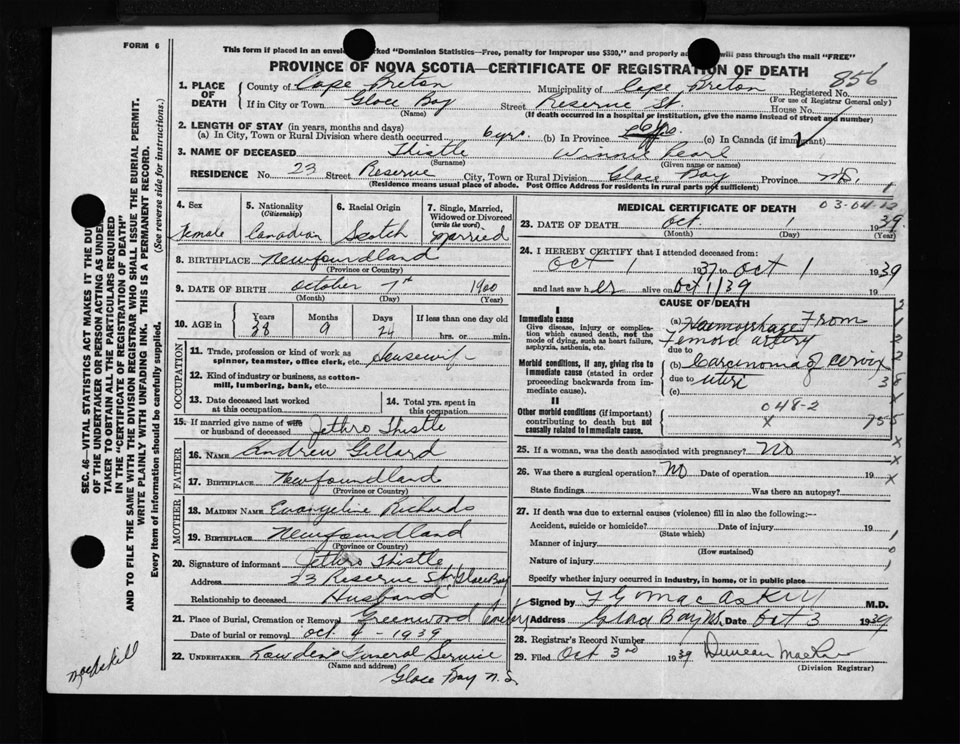 FORM 6
This form if placed in an envelope marked "Dominion Statistics—Free, penalty for improper use $300," and properly will pass through the mail "FREE"
PROVINCE OF NOVA SCOTIA—CERTIFICATE OF REGISTRATION OF DEATH
856
1. PLACE OF DEATH
County of Cape Breton Municipality of Cape Breton Registered No.
(For use of Registrar General only)
If in City or Town Glace Bay Street Reserve St House No.
(Name) (If death occurred in a hospital or institution, give the name instead of street and number)
2. LENGTH OF STAY (in years, months and days)
(a) In City, Town or Rural Division where death occurred 6 yrs. (b) In Province 26 yrs (c) In Canada (if immigrant)
3. NAME OF DECEASED Thistle Winnie Pearl
(Surname) (Given name or names)
RESIDENCE No. 23 Street Reserve City, Town or Rural Division Glace Bay Province N.S. 1
(Residence means usual place of abode. Post Office Address for residents in rural parts not sufficient)
4. Sex Female
5. Nationality (Citizenship) Canadian
6. Racial Origin Scotch
7. Single, Married, Widowed or Divorced (write the word) Married
8. BIRTHPLACE Newfoundland
(Province or Country)
9. DATE OF BIRTH October 7th 1900
(Month) (Day) (Year)
10. AGE in Years 38 Months 9 Days 24 If less than one day old hrs. or min.
OCCUPATION
11. Trade, profession or kind of work as spinner, teamster, office clerk, etc. Housewife
12. Kind of industry or business, as cotton-mill, lumbering, bank, etc.
13. Date deceased last worked at this occupation
14. Total yrs. spent in this occupation
15. If married give name of wife or husband of deceased Jethro Thistle
FATHER
16. NAME Andrew Gillard
17. BIRTHPLACE Newfoundland
(Province or Country)
MOTHER
18. MAIDEN NAME Evangeline Richards
19. BIRTHPLACE Newfoundland
(Province or Country)
20. Signature of informant Jethro Thistle
Address 23 Reserve St, Glace Bay
Relationship to deceased Husband
21. Place of Burial, Cremation or Removal Greenwood Cemetery
Date of burial or removal Oct. 4 - 1939
22. UNDERTAKER Funeral Service
(Name and address)
Glace Bay N.S.
MEDICAL CERTIFICATE OF DEATH 03-04-12
23. DATE OF DEATH Oct 1 1939
(Month) (Day) (Year)
24. I HEREBY CERTIFY that I attended deceased from:
Oct 1 1937 to Oct 1 1939
and last saw her alive on Oct 1/39 19
CAUSE OF DEATH
I
Immediate cause
Give disease, injury or complication which caused death, not the mode of dying, such as heart failure, asphyxia, asthenia, etc.
(a) Haemorrhage From
Femoral artery
due to
Morbid conditions, if any, giving rise to immediate cause (stated in order proceeding backwards from immediate cause).
(b) Carcinoma of cervix
due to uteri
(c)
II
Other morbid conditions (if important) contributing to death but not causally related to immediate cause.
048-2
x
25. If a woman, was the death associated with pregnancy? No
26. Was there a surgical operation? No Date of operation 19
State findings Was there an autopsy?
27. If death was due to external causes (violence) fill in also the following:—
Accident, suicide or homicide? Date of injury 19
(State which)
Manner of injury
(How sustained)
Nature of injury
Specify whether injury occurred in industry, in home, or in public place
Signed by MacAskill M.D.
Address Glace Bay N.S. Date Oct 3 1939
28. Registrar's Record Number
29. Filed Oct 3rd 1939 Duncan
(Division Registrar)
SEC. 46—VITAL STATISTICS ACT MAKES IT THE DUTY
OF THE UNDERTAKER OR PERSON ACTING AS UNDER-
TAKER TO OBTAIN ALL THE PARTICULARS REQUIRED
IN THE "CERTIFICATE OF REGISTRATION OF DEATH"
AND TO FILE THE SAME WITH THE DIVISION REGISTRAR WHO SHALL ISSUE THE BURIAL PERMIT.
WRITE PLAINLY WITH UNFADING INK. THIS IS A PERMANENT RECORD.
Every item of information should be carefully supplied. (See reverse side for instructions.)
MacAskill